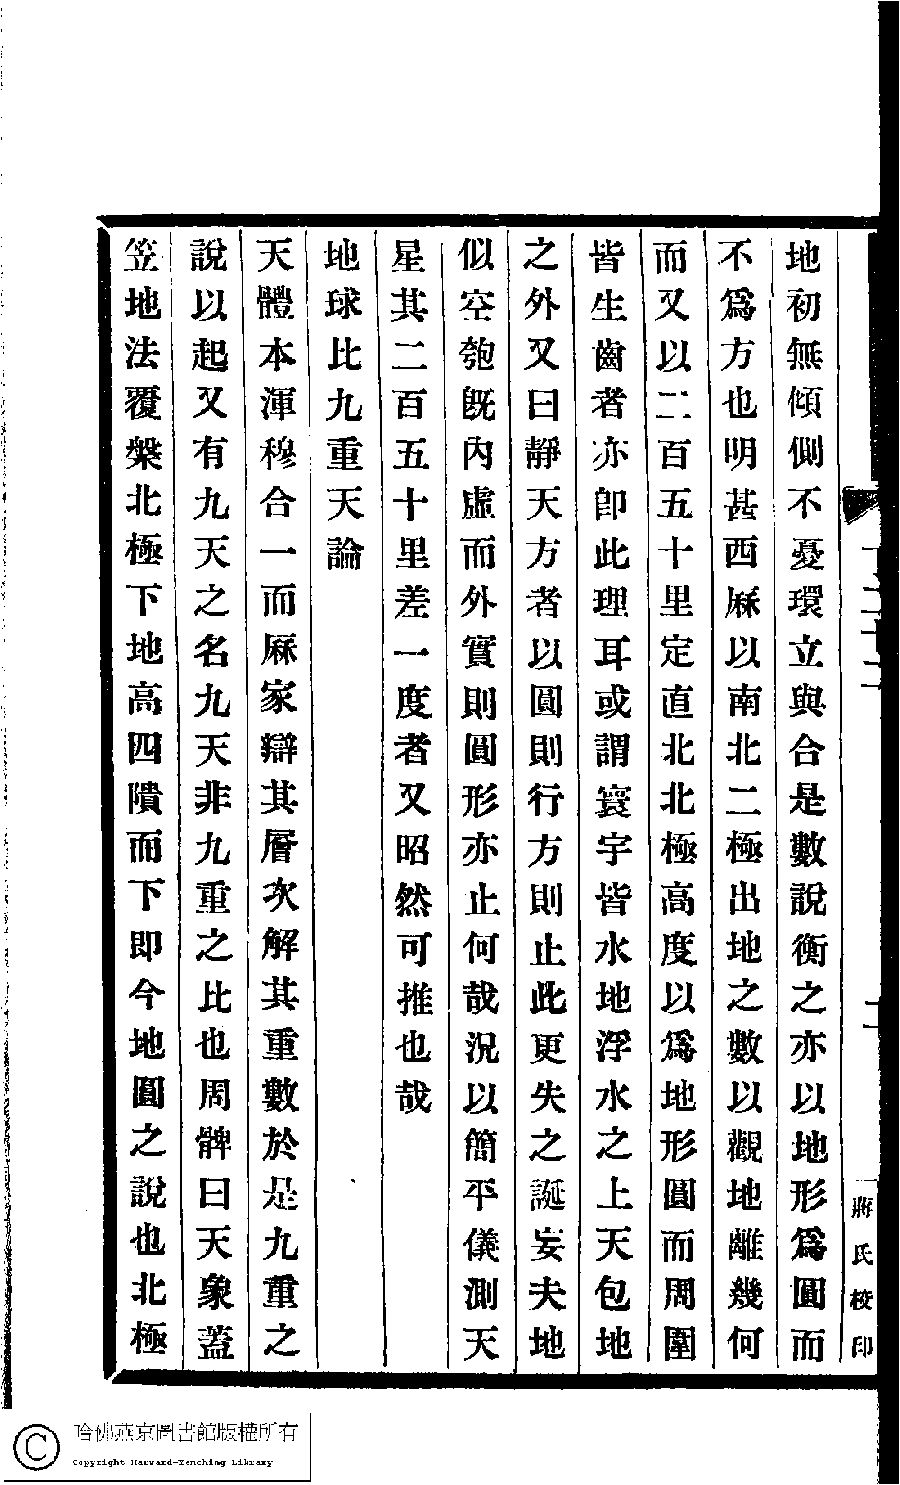 地初無傾側不憂環立與合是數說衡之亦以地形爲圓而
不爲方也明甚西厤以南北二極出地之數以觀地離幾何
而又以二百五十里定直北北極高度以爲地形圓而周圍
皆生齒者亦卽此理耳或謂寰宇皆水地浮水之上天包地
之外又曰靜天方者以圓則行方則止此更失之誕妄夫地
似空匏旣內虛而外實則圓形亦止何哉況以簡平儀測天
星其二百五十里差一度者又昭然可推也哉
地球比九重天論
天體本渾穆合一而厤家辯其層次解其重數於是九重之
說以起又有九天之名九天非九重之比也周髀曰天象蓋
笠地法覆槃北極下地高四隤而下即今地圓之說也北極
蔣氏校印
哈佛燕京圖書館版權所有
Copyright Harvard-Yenching Library